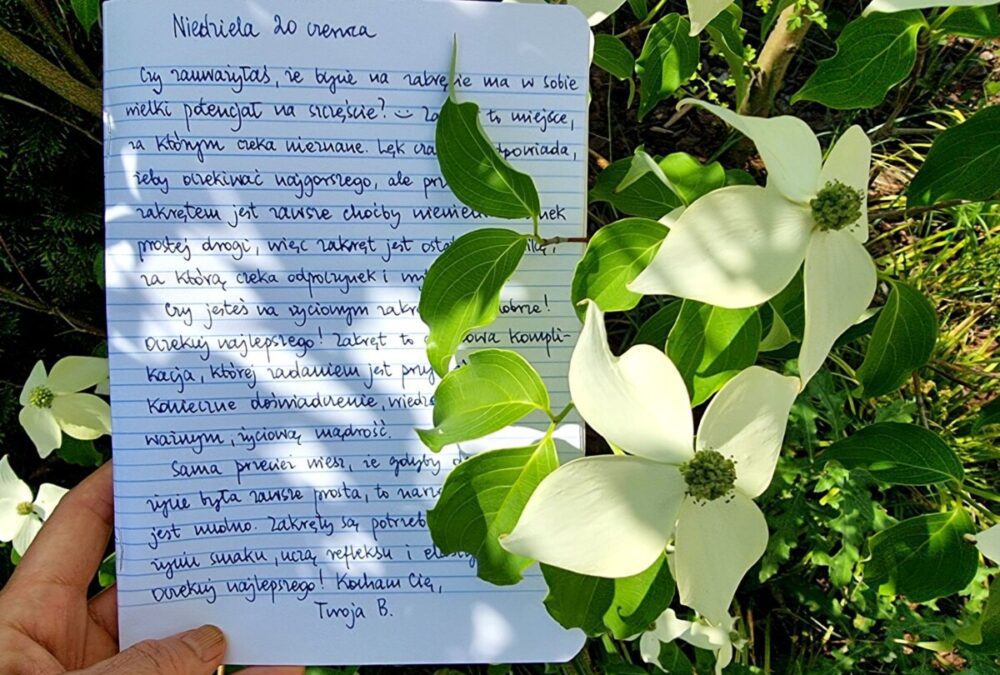 Niedziela 20 czerwca
Czy zauważyłaś, że bycie na zakręcie ma w sobie
wielki potencjał na szczęście? :) to miejsce,
za którym czeka nieznane. Lęk
żeby oczekiwać najgorszego, ale
zakrętem jest zawsze choćby
prostej drogi, więc zakręt jest
za którą czeka odpoczynek i
Czy jesteś na życiowym dobrze!
Oczekuj najlepszego! Zakręt to kompli-
kacja, której zadaniem jest
konieczne doświadczenie,
ważnym, życiową mądrość.
Sama przecież wiesz, że gdyby
życie była zawsze prosta, to
jest nudno. Zakręty są
życiu smaku, uczą refleksu i
Oczekuj najlepszego! Kocham Cię,
Twoja B.